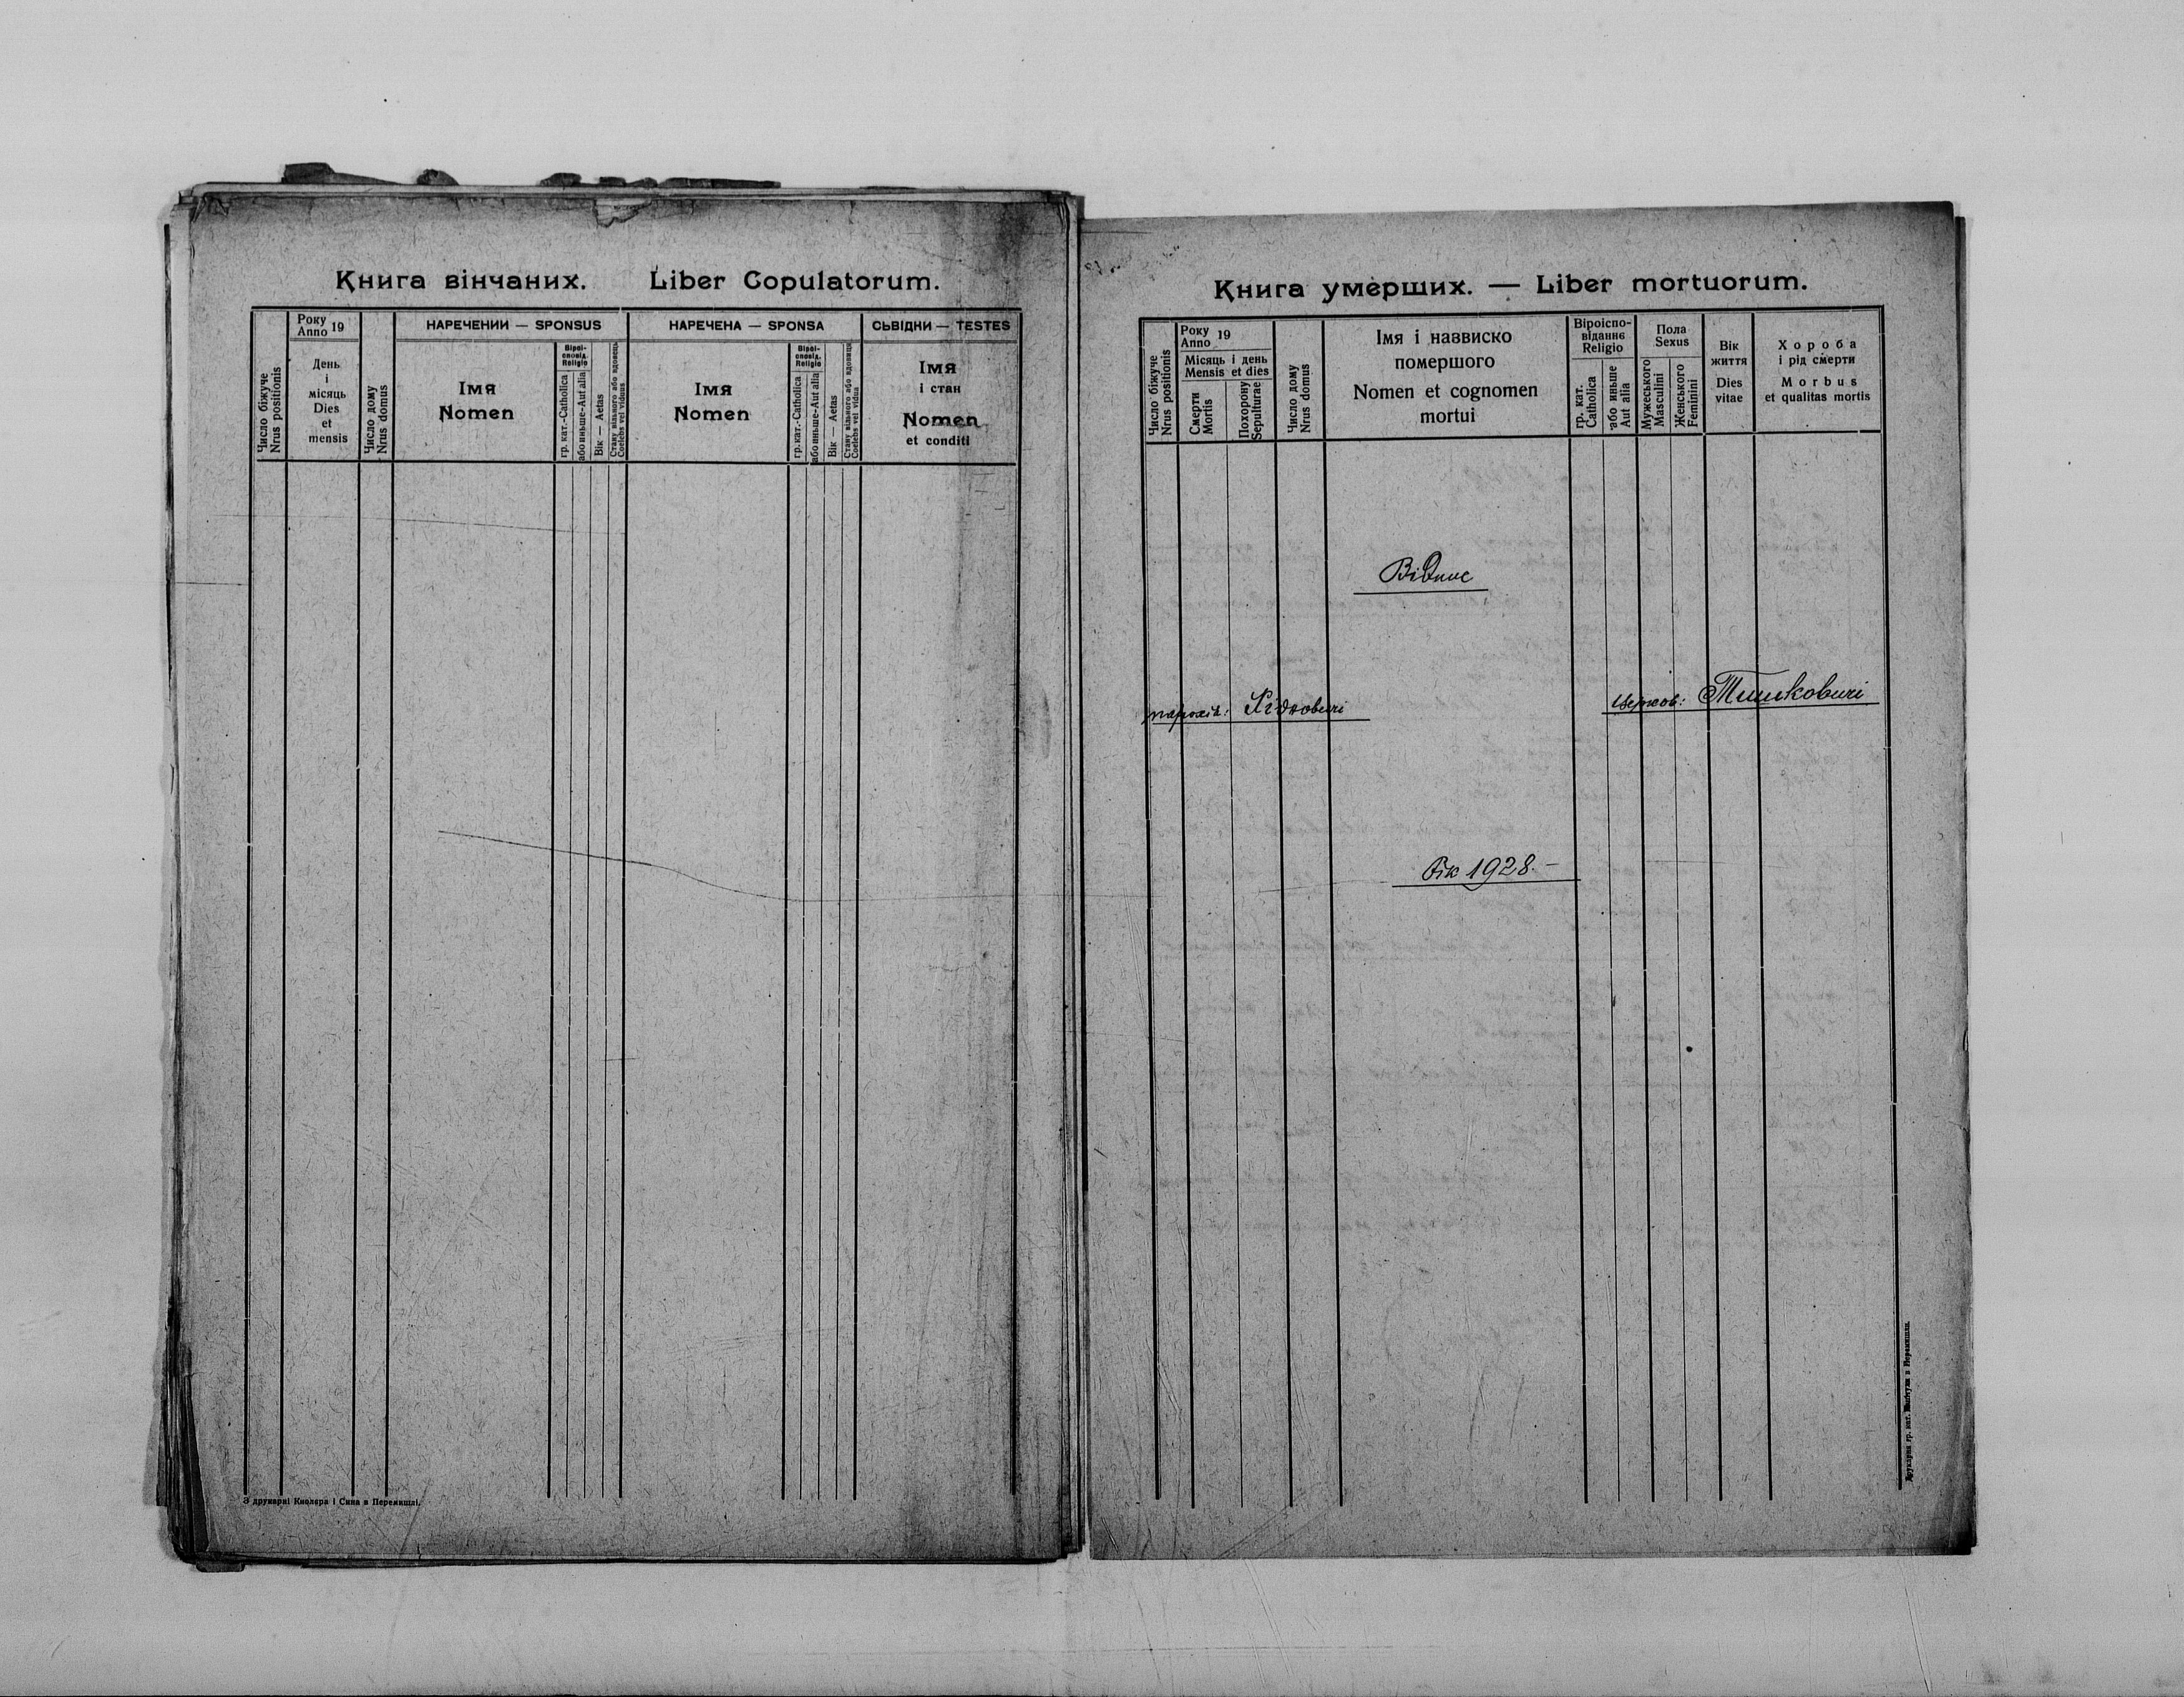 Книга вінчаних. Liber Copulatorum.
Число біжуче
Nrus positionis
Року
Anno 19
День
і
місяць
Dies
et
mensis
Число дому
Nrus domus
НАРЕЧЕНИИ — SPONSUS
Імя
Nomen
Віроі-
сповід.
Religio
гр. кат.-Catholica
або иньше-Aut alia
Вік — Aetas
Стану вільного або вдовець
Coelebs vel viduus
НАРЕЧЕНА — SPONSA
Імя
Nomen
Віроі-
сповід.
Religio
гр. кат.-Catholica
або иньше-Aut alia
Вік — Aetas
Стану вільного або вдовиця
Coelebs vel vidua
СЬВІДКИ — TESTES
Імя
і стан
Nomen
et conditi
З друкарні Кнолера і Сина в Перемишлі.
Книга умерших. — Liber mortuorum.
Число біжуче
Nrus positionis
Року
Anno 19
Місяць і день
Mensis et dies
Смерти
Mortis
Похорону
Sepulturae
Число дому
Nrus domus
Імя і назвиско
помершого
Nomen et cognomen
mortui
Віроіспо-
віданнє
Religio
гр. кат.
Catholica
або иньше
Aut alia
Пола
Sexus
Мужеського
Masculini
Женського
Feminini
Вік
життя
Dies
vitae
Хороба
і рід смерти
Morbus
et qualitas mortis
Відпис
парохія:
церков: Тишковичі
Рік 1928.—
Друкарня гр. кат. в Перемишли.